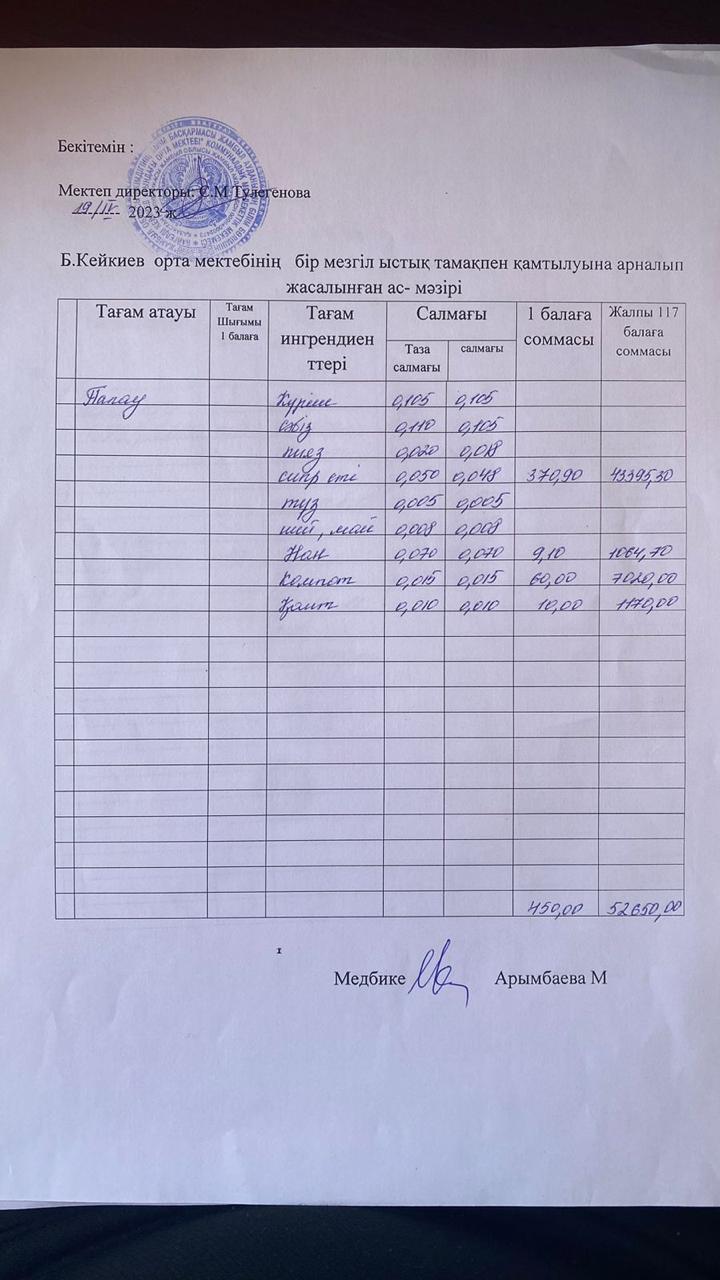 Бекітемін :
Мектеп директоры: С.М.Тулегенова
19/IV 2023 ж.
Б.Кейкиев орта мектебінің бір мезгіл ыстық тамақпен қамтылуына арналып
жасалынған ас- мәзірі
Тағам атауы Тағам Шығымы 1 балаға Тағам ингрендиен ттері Салмағы 1 балаға соммасы Жалпы 117 балаға соммасы
Таза салмағы салмағы
Палау Күріш 0,105 0,105
сәбіз 0,110 0,105
пияз 0,020 0,018
сиыр еті 0,050 0,048 370,90 43395,30
тұз 0,005 0,005
май 0,008 0,008
Нан 0,070 0,070 9,10 1064,70
Компот 0,015 0,015 60,00 7020,00
Қант 0,010 0,010 10,00 1170,00
450,00 52650,00
Медбике Арымбаева М